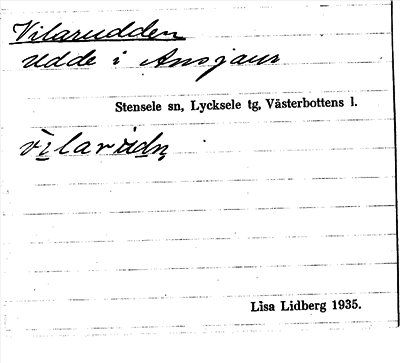 Vilarudden
Udde i Ansjaur
Stensele sn, Lycksele tg, Västerbottens l.
Lisa Lidberg 1935.